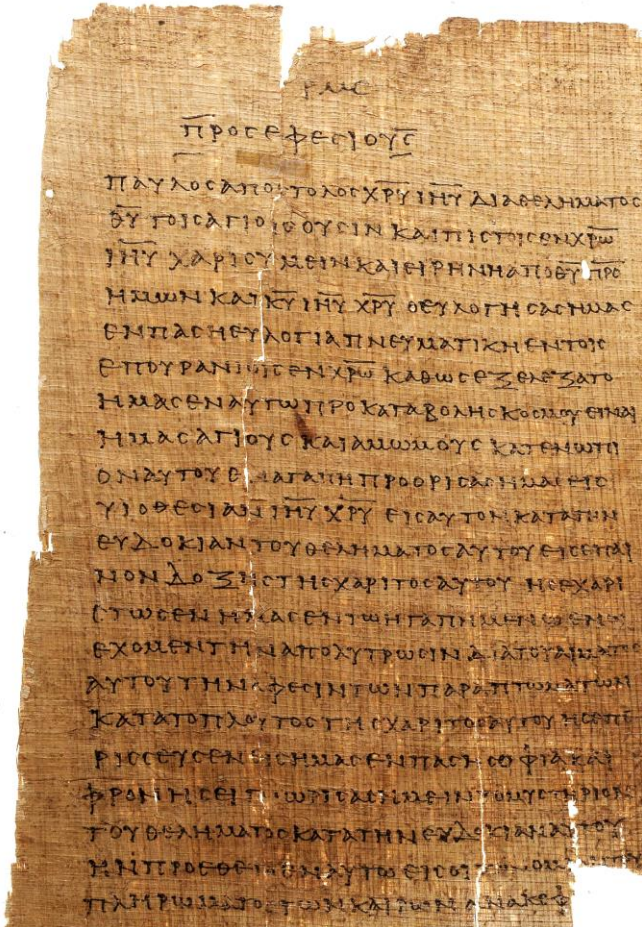 ΡΜϚ
ΠΡΟϹΕΦΕϹΙΟΥϹ
ΠΑΥΛΟϹΑΠΟϹΤΟΛΟϹΧ̅Ρ̅Υ̅ Ι̅Η̅Υ̅ ΔΙΑΘΕΛΗΜΑΤΟϹ
Θ̅Υ̅ ΤΟΙϹΑΓΙΟΙϹΟΥϹΙΝ ΚΑΙΠΙϹΤΟΙϹΕΝΧ̅Ρ̅Ω̅
Ι̅Η̅Υ̅ ΧΑΡΙϹΥΜΕΙΝΚΑΙΕΙΡΗΝΗΑΠΟΘ̅Υ̅ Π̅Ρ̅Ϲ̅
ΗΜΩΝ ΚΑΙΚ̅Υ̅ Ι̅Η̅Υ̅ Χ̅Ρ̅Υ̅ ΟΕΥΛΟΓΗϹΑϹΗΜΑϹ
ΕΝΠΑϹΗΕΥΛΟΓΙΑΠΝΕΥΜΑΤΙΚΗΕΝΤΟΙϹ
ΕΠΟΥΡΑΝΙΟΙϹΕΝΧ̅Ρ̅Ω̅ ΚΑΘΩϹΕΞΕΛΕΞΑΤΟ
ΗΜΑϹΕΝΑΥΤΩΠΡΟΚΑΤΑΒΟΛΗϹΚΟϹΜΟΥΕΙΝΑΙ
ΗΜΑϹΑΓΙΟΥϹΚΑΙΑΜΩΜΟΥϹΚΑΤΕΝΩΠΙ
ΟΝΑΥΤΟΥΕΝΑΓΑΠΗΠΡΟΟΡΙϹΑϹΗΜΑϹΕΙϹ
ΥΙΟΘΕϹΙΑΝΙ̅Η̅Υ̅ Χ̅Ρ̅Υ̅ ΕΙϹΑΥΤΟΝΚΑΤΑΤΗΝ
ΕΥΔΟΚΙΑΝΤΟΥΘΕΛΗΜΑΤΟϹΑΥΤΟΥΕΙϹΕΠΑΙ
ΝΟΝΔΟΞΗϹΤΗϹΧΑΡΙΤΟϹΑΥΤΟΥ ΗϹΕΧΑΡΙ
ϹΤΩϹΕΝΗΜΑϹΕΝΤΩΗΓΑΠΗΜΕΝΩΕΝΩ
ΕΧΟΜΕΝΤΗΝΑΠΟΛΥΤΡΩϹΙΝΔΙΑΤΟΥΑΙΜΑΤΟϹ
ΑΥΤΟΥΤΗΝΑΦΕϹΙΝΤΩΝΠΑΡΑΠΤΩΜΑΤΩΝ
ΚΑΤΑΤΟΠΛΟΥΤΟϹΤΗϹΧΑΡΙΤΟϹΑΥΤΟΥΗϹΕΠΕ
ΡΙϹϹΕΥϹΕΝΕΙϹΗΜΑϹΕΝΠΑϹΗϹΟΦΙΑΚΑΙ
ΦΡΟΝΗϹΕΙΓΝΩΡΙϹΑϹΗΜΕΙΝΤΟΜΥϹΤΗΡΙΟΝ
ΤΟΥΘΕΛΗΜΑΤΟϹΚΑΤΑΤΗΝΕΥΔΟΚΙΑΝΑΥΤΟΥ
ΗΝΠΡΟΕΘΕΤΟΕΝΑΥΤΩΕΙϹΟΙΚΟΝΟΜΙΑΝΤΟΥ
ΠΛΗΡΩΜΑΤΟϹΤΩΝΚΑΙΡΩΝΑΝΑΚΕΦ